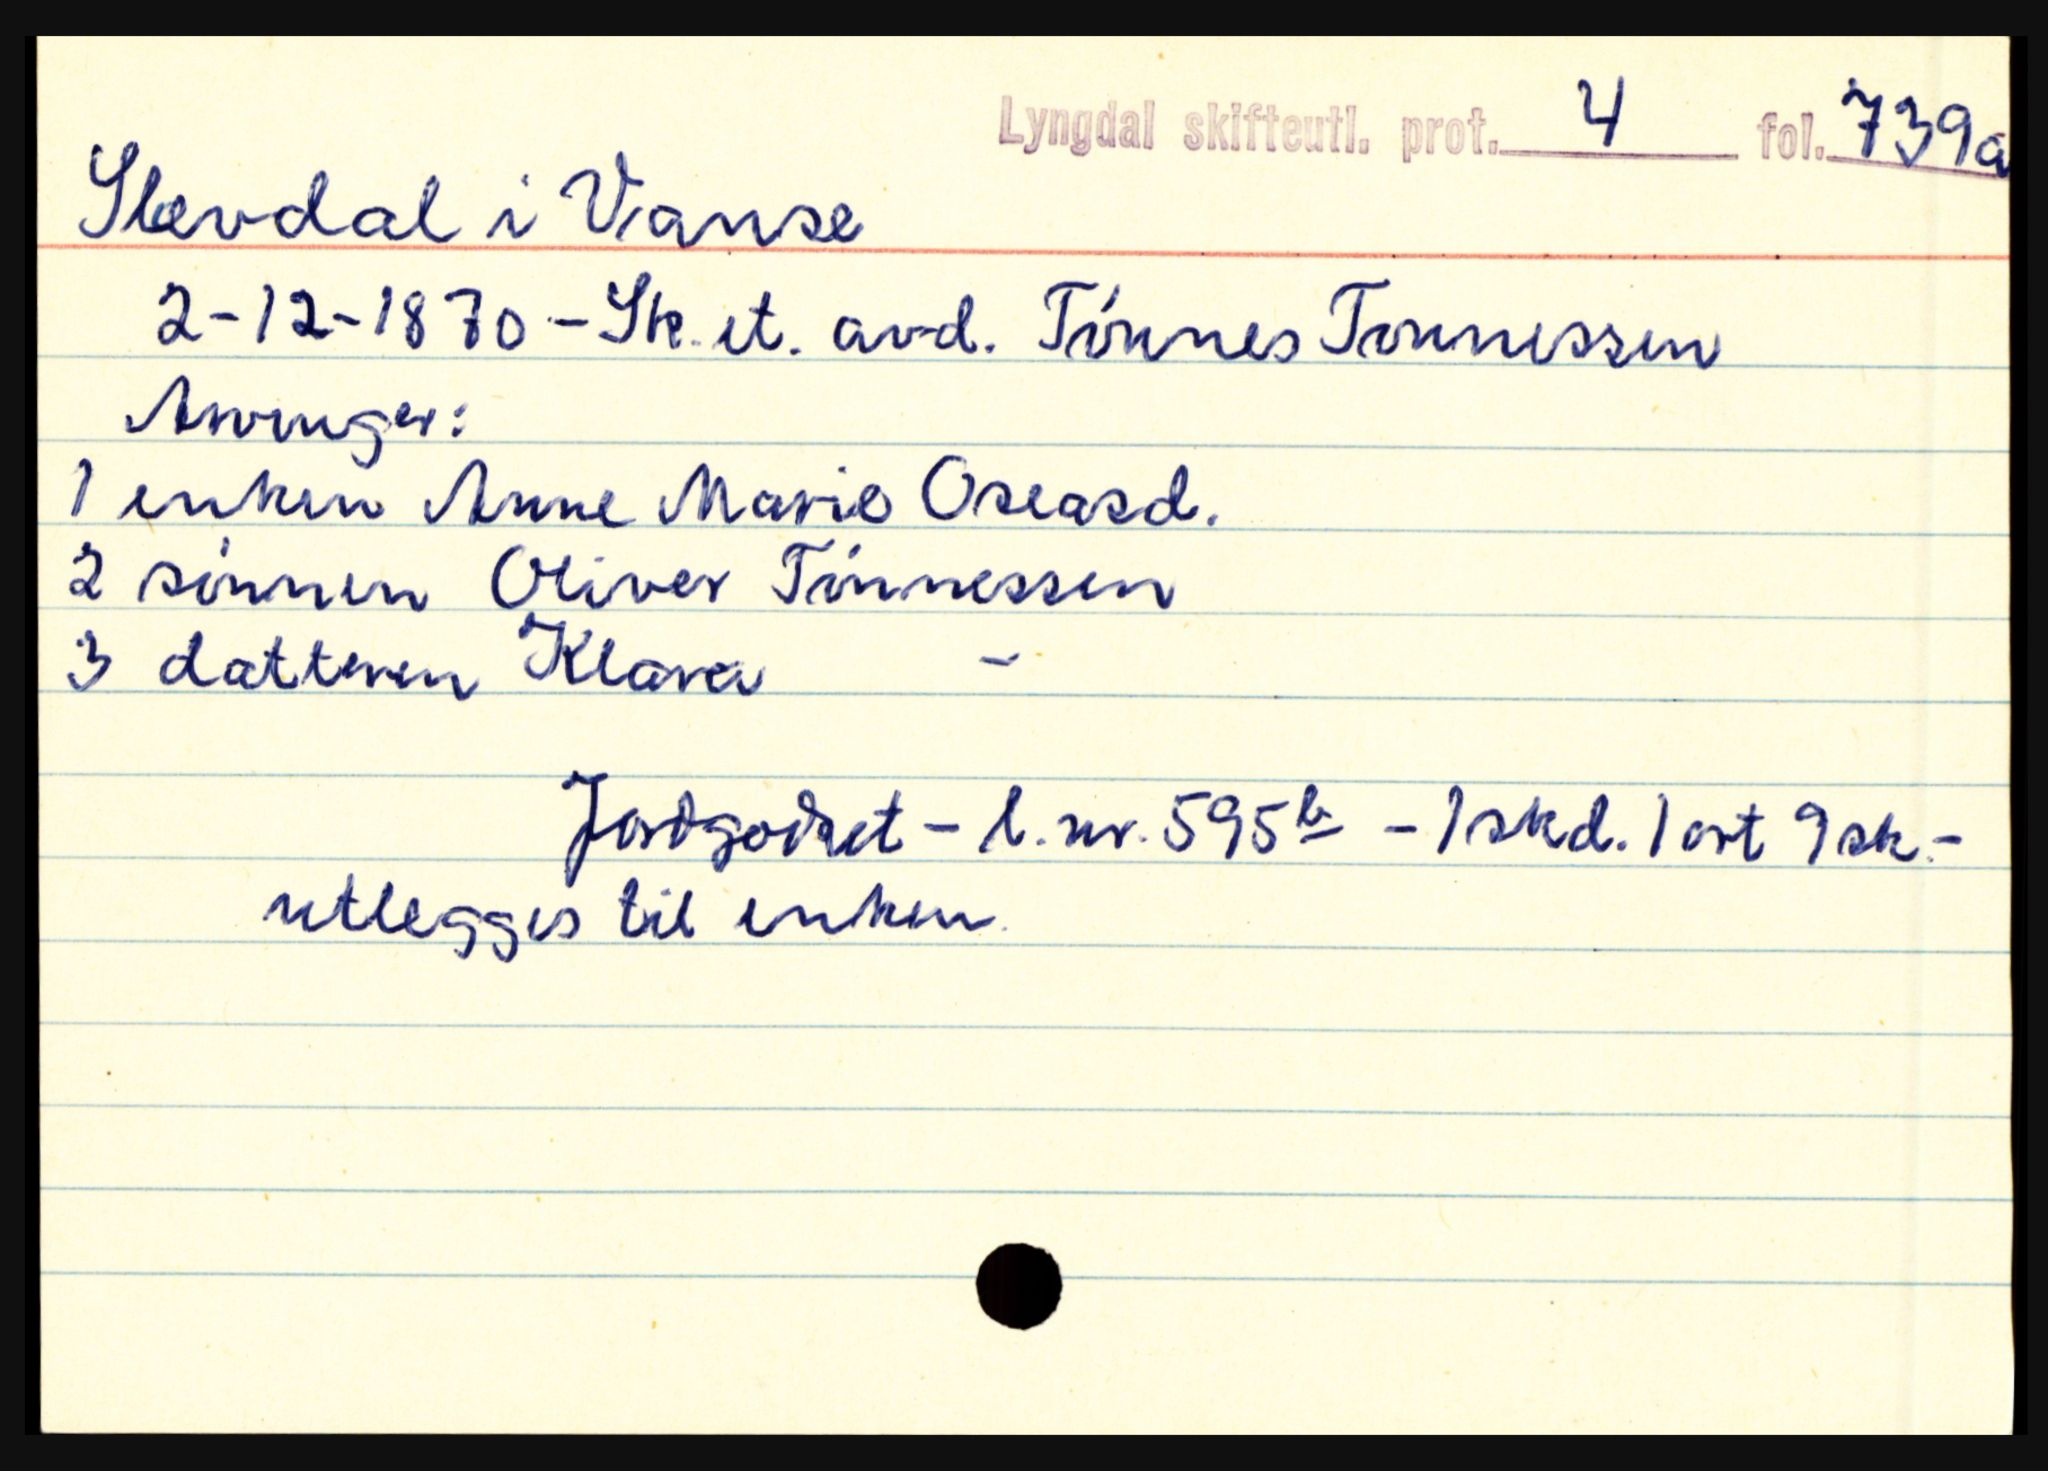 Lyngdal skifteutl. prot. 4 fol. 739a
Slevdal i Vanse
2-12-1870 - Sk. et. avd. Tönnes Tönnessen
Arvinger:
1 enken Anne Marie Oseasd.
2 sönnen Oliver Tönnessen
3 datteren Klara -
Jordgodset - l. nr. 595b - 1 skd. 1 ort 9 sk. -
utlegges til enken.